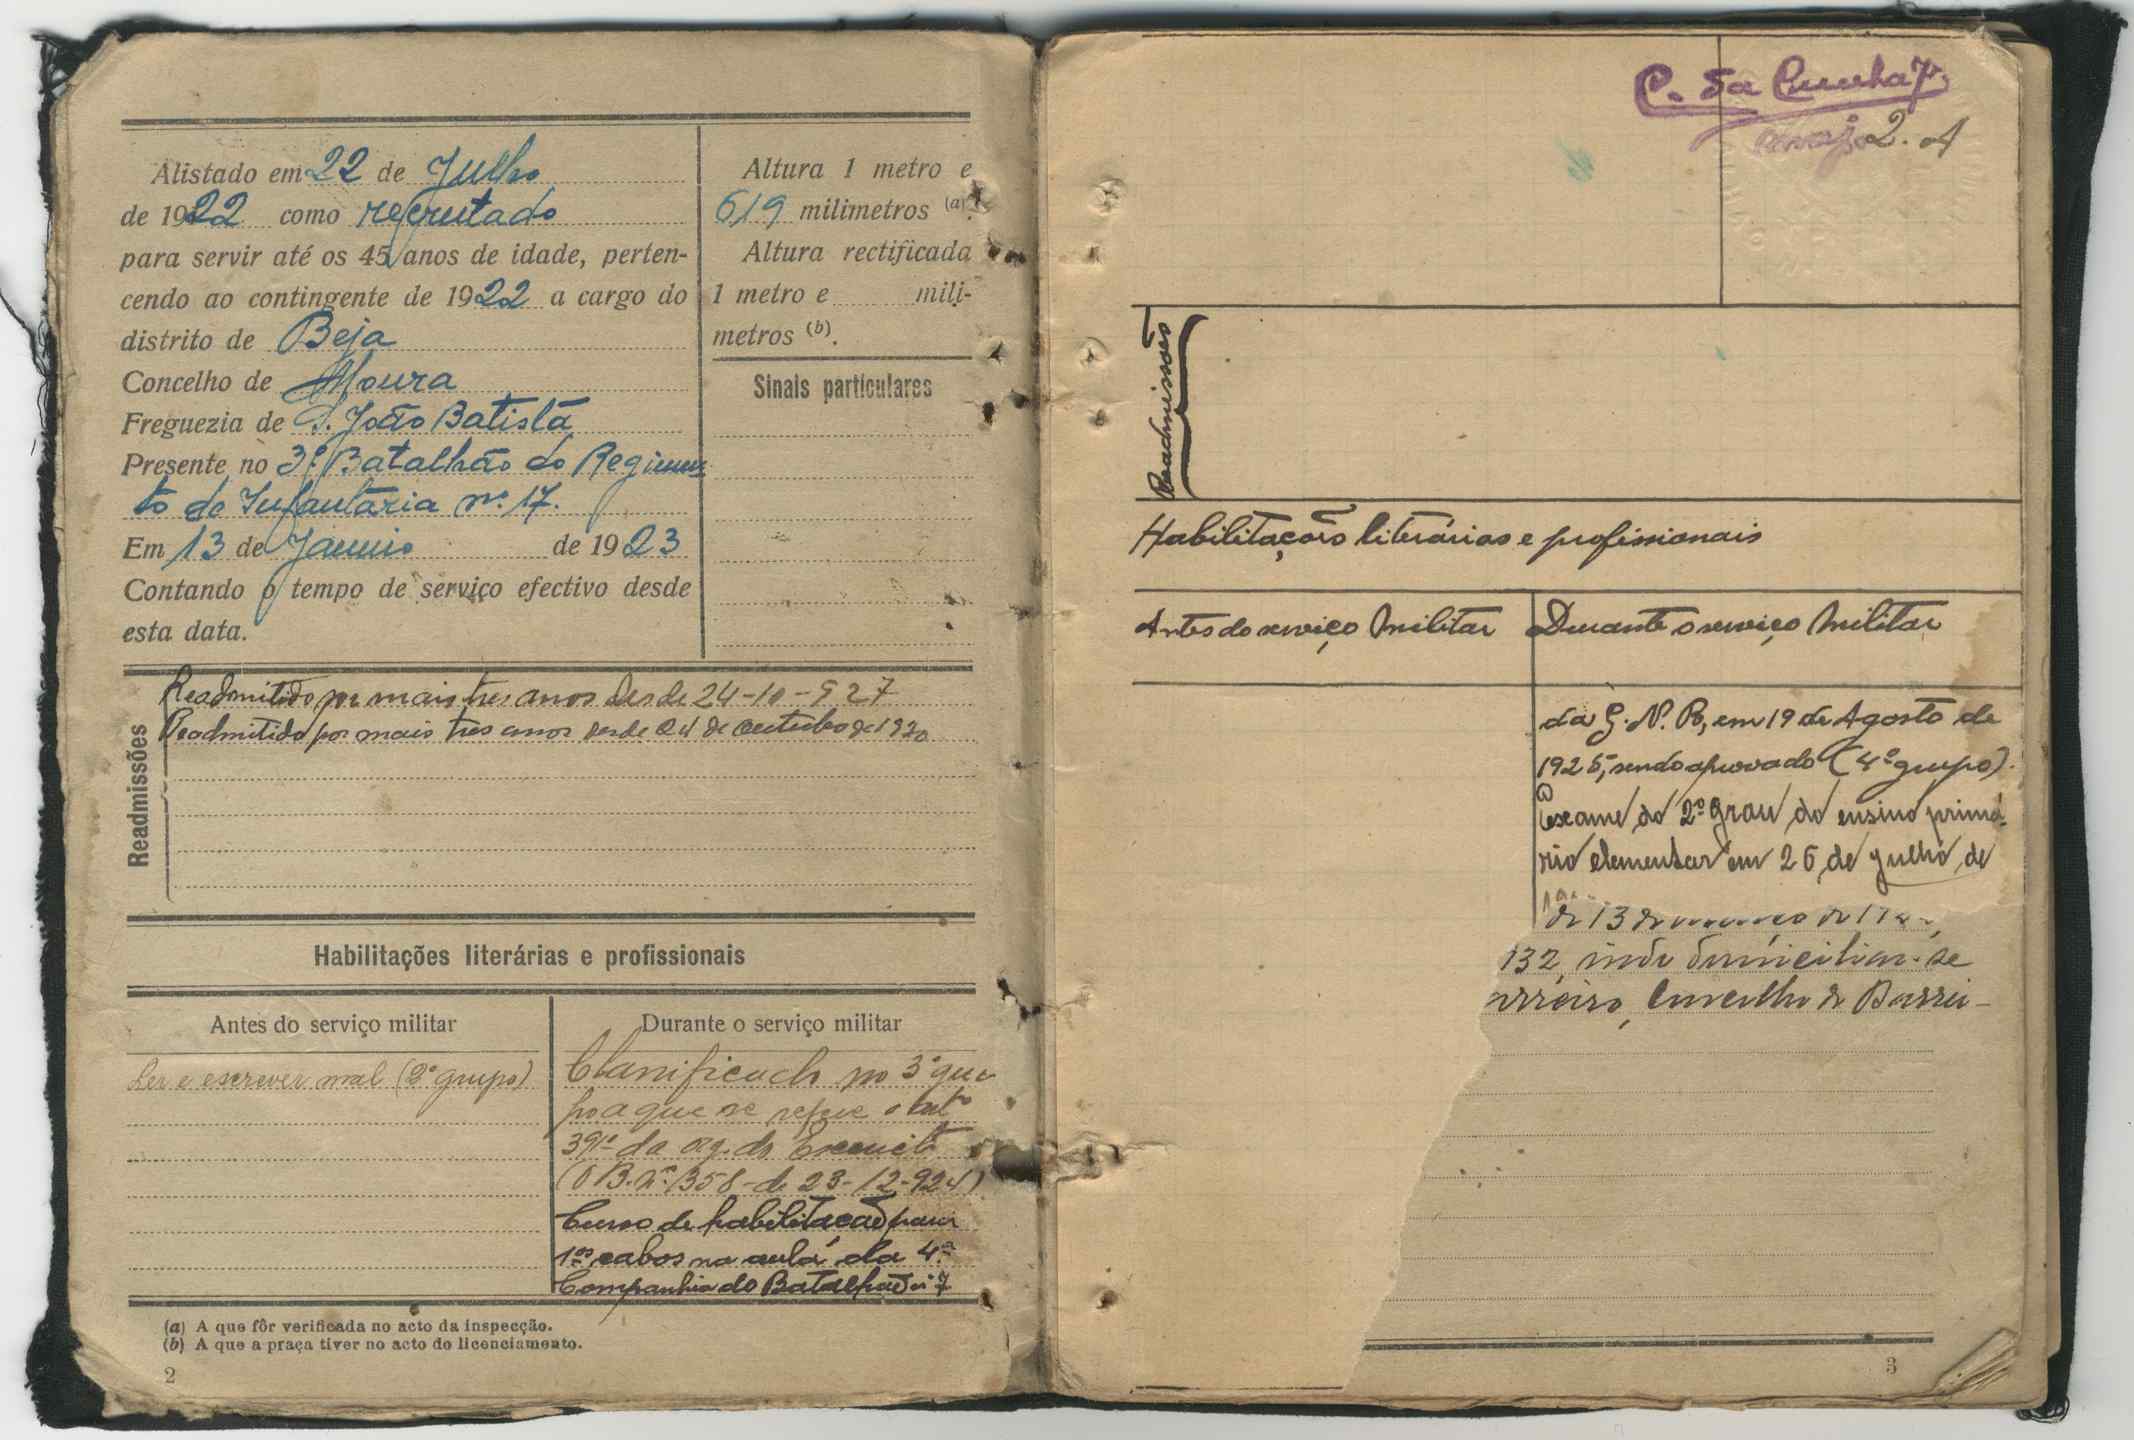 Alistado em 22 de Julho
de 1922 como recrutado
para servir até os 45 anos de idade, perten-
cendo ao contingente de 1922 a cargo do
distrito de Beja
Concelho de Moura
Freguezia de S. João Batista
Presente no 3º Batalhão do Regimen
to de Infantaria nº 17.
Em 13 de Janeiro de 1923
Contando o tempo de serviço efectivo desde
esta data.
Altura 1 metro e
619 milimetros (a).
Altura rectificada
1 metro e mili-
metros (b).
Sinais particulares
Readmissões
Readmitido por mais tres anos desde 24-10-927
Readmitido por mais tres anos desde 24 de outubro de 1930
Habilitações literárias e profissionais
Antes do serviço militar
Ler e escrever mal (2º grupo)
Durante o serviço militar
Classificado no 3º gru
po a que se refere o
da do Exercito
(O B. nº 358 de 23-12-924)
Curso de habilitação para
1ºs cabos na aula da 4ª
Companhia do Batalhão nº 7
(a) A que fôr verificada no acto da inspecção.
(b) A que a praça tiver no acto do licenciamento.
2
C. da Cunha
2. A
Readmissões
Habilitações literárias e profissionais
Antes do serviço Militar
Durante o serviço Militar
da G. N. R., em 19 de Agosto de
1925, sendo aprovado (4º grupo).
Exame do 2º grau do ensino primá-
rio elementar em 26 de julho de
de 13 de março de
132, indo domiciliar-se
arreiro, Concelho de Barrei-
3